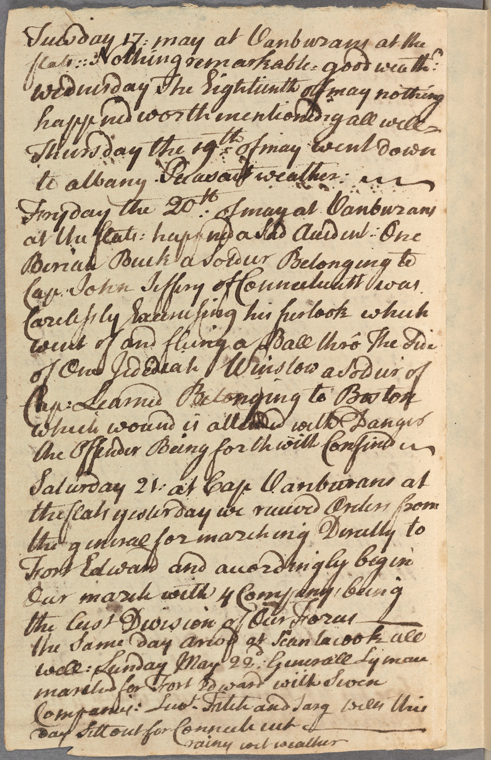 Tuesday 17: may at Vanburans at the
flats:: Nothing remarkable = good weath:
wednesday The Eightenth of may nothing
happned worth mentioning all well =
Thursday the 19th of may went down
to albany Pleasant weather:
Fryday the 20th: of may at Vanburans
at the flats: hapned a Sad Accident: One
Beriah Buck a Soldier Belonging to
Cap. John Jeffery of Connecticutt was
Carelessly Exercising his furlook which
went of and flung a Ball thrô The Side
of One Jedediah Winslow a Soldier of
Cap: Learned Belonging to Boston
which wound is attended with Danger
the Offender Being forthwith Confind
Saturday 21: at Cap Vanburans at
the flats yesterday we received Orders from
the general for marching Directly to
Fort Edward and accordingly begin
Our march with 4 Companys being
the Division of Our Forces
the Same day arive at Scantacook all
well: Sunday May 22d: Generall Lyman
marched for Fort Edward with Seven
Companies: Fitch and Sarg Wells this
day Sett out for Connecticut
rainy wet weather